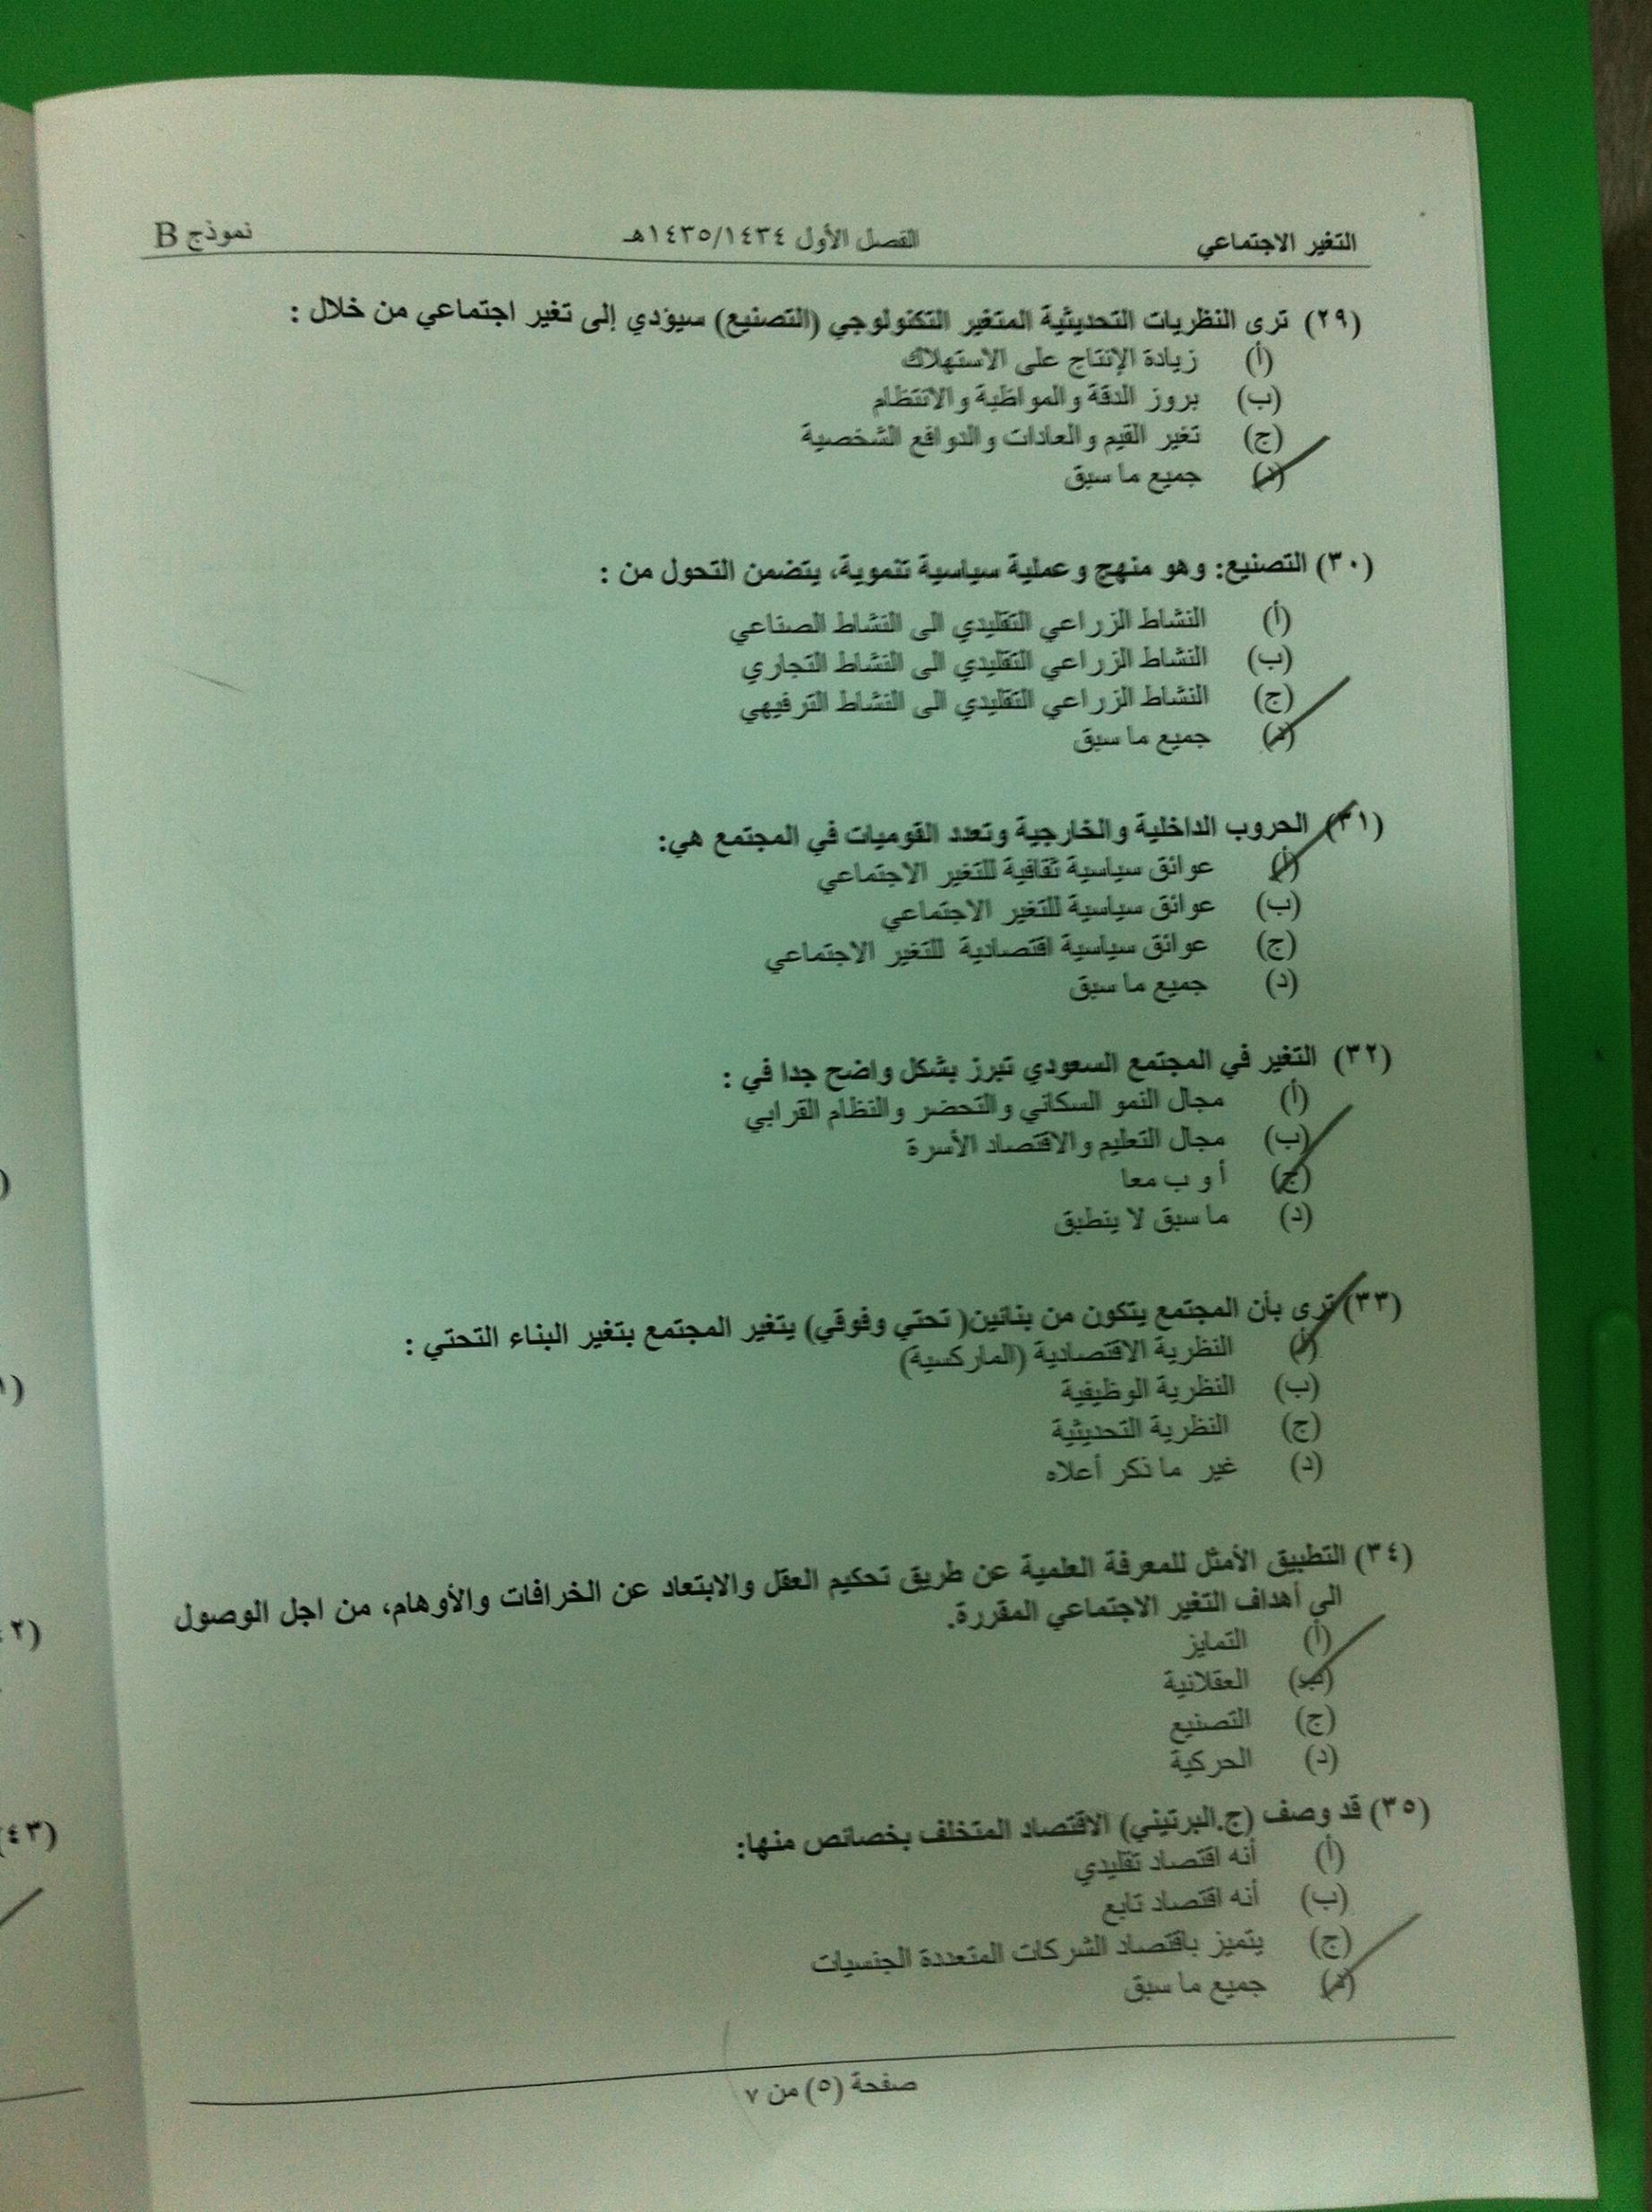 التغير الاجتماعي الفصل الأول ١٤٣٥/١٤٣٤هـ نموذج B
(٢٩) ترى النظريات التحديثية المتغير التكنولوجي (التصنيع) سيؤدي إلى تغير اجتماعي من خلال :
(أ) زيادة الإنتاج على الاستهلاك
(ب) بروز الدقة والمواظبة والانتظام
(ج) تغير القيم والعادات والدوافع الشخصية
(د) جميع ما سبق
(٣٠) التصنيع: وهو منهج وعملية سياسية تنموية، يتضمن التحول من :
(أ) النشاط الزراعي التقليدي الى النشاط الصناعي
(ب) النشاط الزراعي التقليدي الى النشاط التجاري
(ج) النشاط الزراعي التقليدي الى النشاط الترفيهي
(د) جميع ما سبق
(٣١) الحروب الداخلية والخارجية وتعدد القوميات في المجتمع هي:
(أ) عوائق سياسية ثقافية للتغير الاجتماعي
(ب) عوائق سياسية للتغير الاجتماعي
(ج) عوائق سياسية اقتصادية للتغير الاجتماعي
(د) جميع ما سبق
(٣٢) التغير في المجتمع السعودي تبرز بشكل واضح جدا في :
(أ) مجال النمو السكاني والتحضر والنظام القرابي
(ب) مجال التعليم والاقتصاد الأسرة
(ج) أ و ب معا
(د) ما سبق لا ينطبق
(٣٣) ترى بأن المجتمع يتكون من بنائين( تحتي وفوقي) يتغير المجتمع بتغير البناء التحتي :
(أ) النظرية الاقتصادية (الماركسية)
(ب) النظرية الوظيفية
(ج) النظرية التحديثية
(د) غير ما ذكر أعلاه
(٣٤) التطبيق الأمثل للمعرفة العلمية عن طريق تحكيم العقل والابتعاد عن الخرافات والأوهام، من اجل الوصول
الى أهداف التغير الاجتماعي المقررة.
(أ) التمايز
(ب) العقلانية
(ج) التصنيع
(د) الحركية
(٣٥) قد وصف (ج.البرتيني) الاقتصاد المتخلف بخصائص منها:
(أ) أنه اقتصاد تقليدي
(ب) أنه اقتصاد تابع
(ج) يتميز باقتصاد الشركات المتعددة الجنسيات
(د) جميع ما سبق
صفحة (٥) من ٧